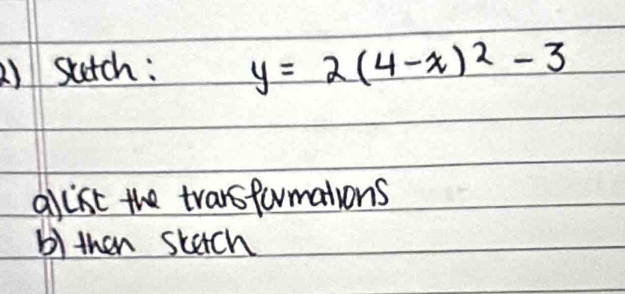 2) Sketch: y = 2(4-x)² - 3
a) List the transformations
b) then sketch